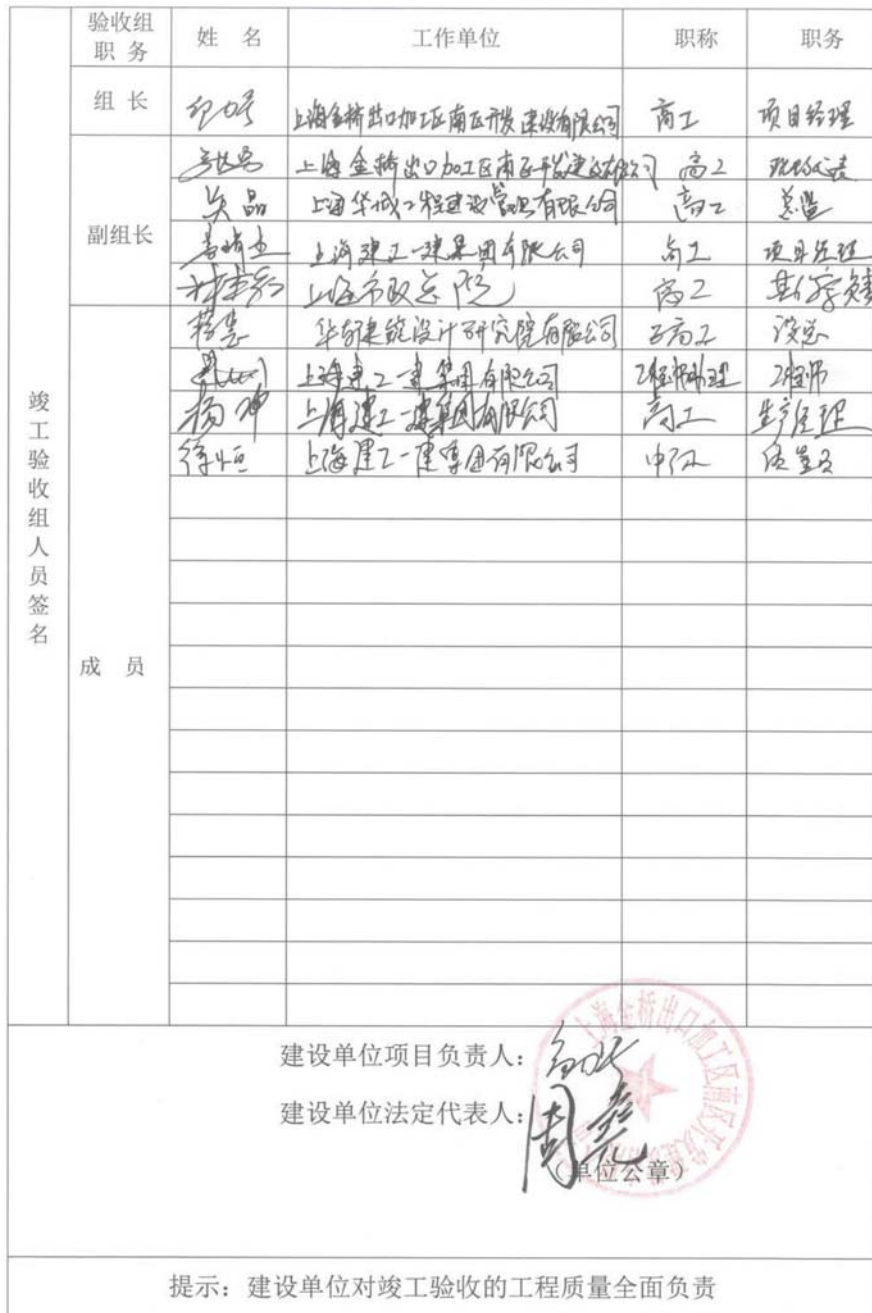 验收组职务 姓 名 工作单位 职称 职务
竣工验收组人员签名
组 长 上海金桥出口加工区南区开发建设有限公司 高工 项目经理
副组长
上海金桥出口加工区南区开发建设有限公司 高工 现场代表
吴晶 上海华城工程建设管理有限公司 高工 总监
上海建工一建集团有限公司 高工 项目经理
上海市政总院 高工
成 员
华东建筑设计研究院有限公司 设总
上海建工一建集团有限公司 工程师
杨坤 上海建工一建集团有限公司 高工 生产经理
徐恒 上海建工一建集团有限公司 质量员
建设单位项目负责人：
建设单位法定代表人：周尧
（单位公章）
上海金桥出口加工区南区开发建设有限公司
提示：建设单位对竣工验收的工程质量全面负责